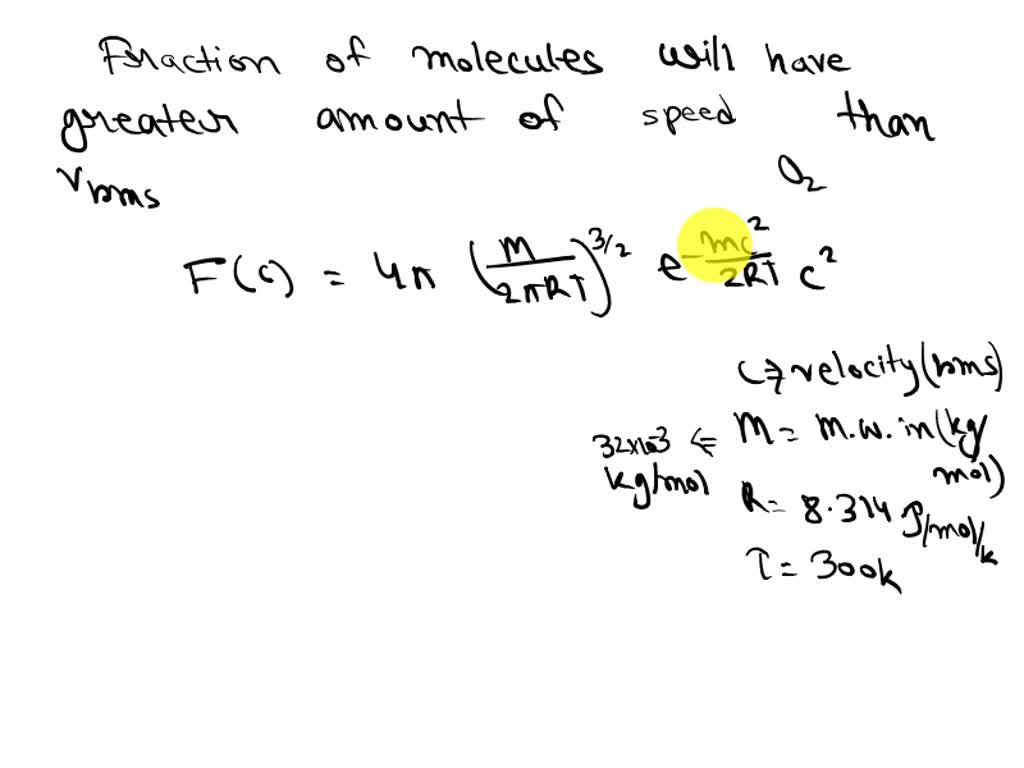 Fraction of molecules will have
greater amount of speed than
Vrms
O₂
F(c) = 4π (M/2πRT)^3/2 e^-mc²/2RT c²
c ⇒ velocity (rms)
32×10^-3 ⇐ M = m.w. in (kg/
kg/mol mol)
R = 8.314 J/mol/k
T = 300k